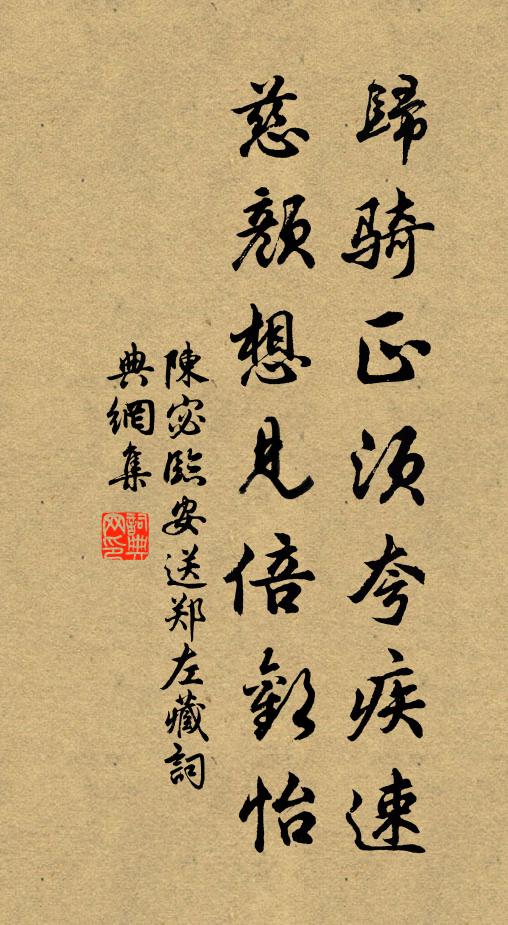 歸騎正須夸疾速
慈顏想見倍歡怡
陳宓臨安送郑左藏詞
典網集
詞典網印